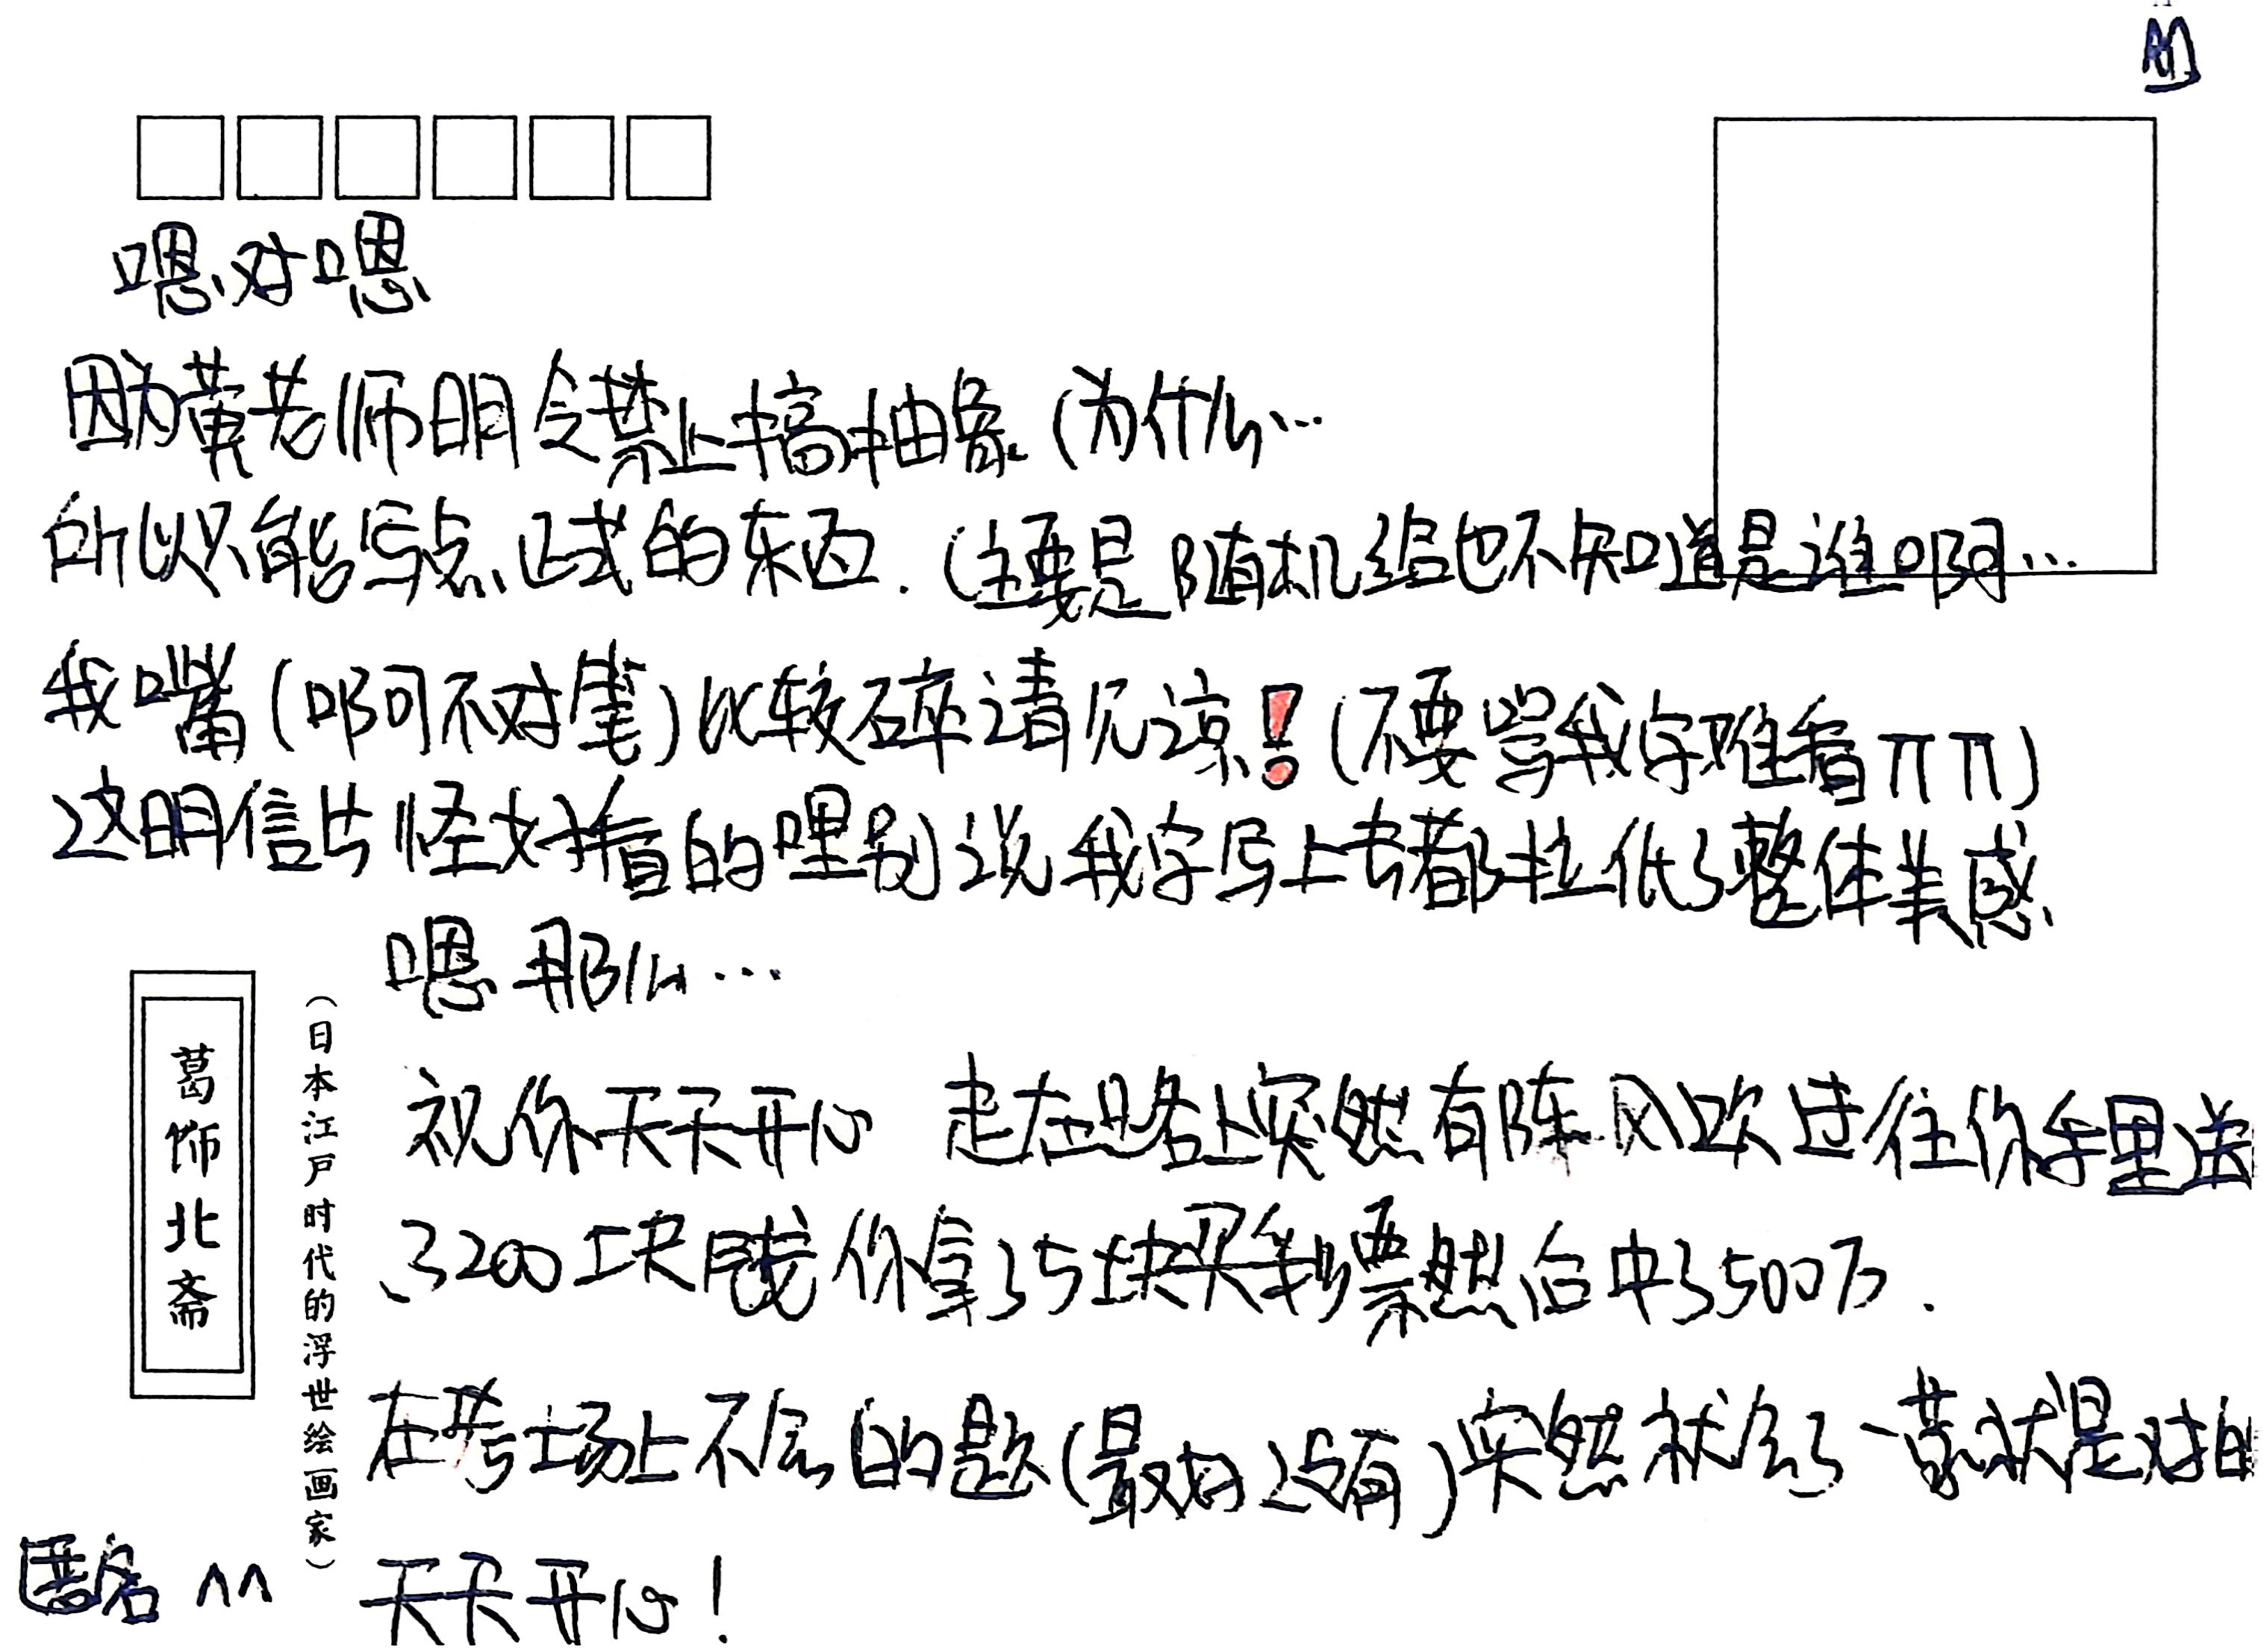 嗯对嗯
因为黄老师明令禁止搞抽象(为什么…
所以只能写点正式的东西.(主要是随机给也不知道是谁啊…
我嘴(啊不对笔)比较碎请见谅!(不要骂我字难看ㅠㅠ)
这明信片怪好看的嘿别说我字写上去都拉低了整体美感
嗯 那么…
祝你天天开心 走在路上突然有阵风吹过往你手里送
了200块钱 你拿了5块买彩票然后中了500万.
在考场上不会的题(最好没有)突然就会了一蒙就是对的
天天开心!
匿名 ^^
葛饰北斋
(日本江户时代的浮世绘画家)